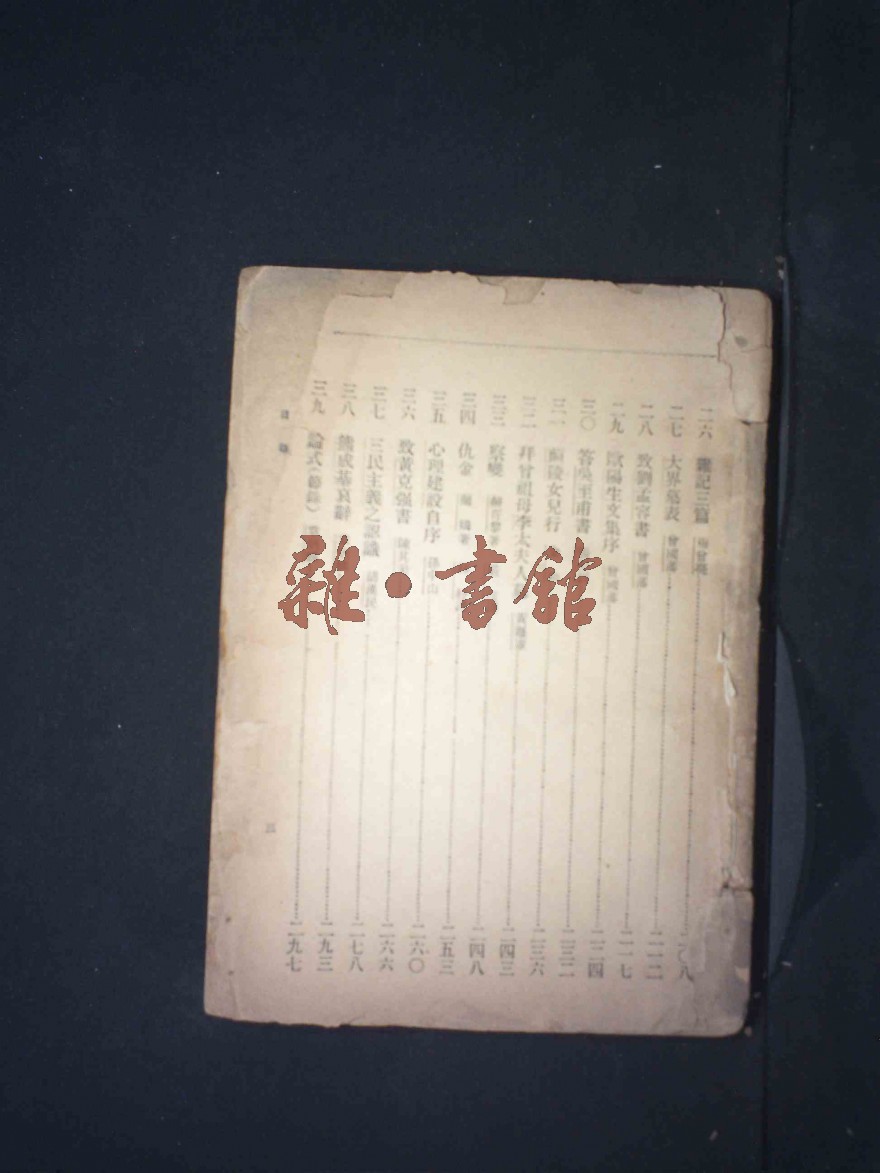 二六 雜記三篇 梅曾亮 二〇八
二七 大界墓表 曾國藩 二一二
二八 致劉孟容書 曾國藩 二一七
二九 歐陽生文集序 曾國藩 二二四
三〇 答吳至甫書 二三二
三一 蘭陵女兒行 二三六
三二 拜曾祖母李太夫人 黃遵憲 二四三
三三 察變 赫胥黎著 二四八
三四 仇金 二五三
三五 心理建設自序 孫中山 二六〇
三六 致黃克强書 陳其 二六六
三七 三民主義之認識 胡漢民 二七八
三八 熊成基哀辭 二九三
三九 論式(節錄) 二九七
目錄
三
雜·書館